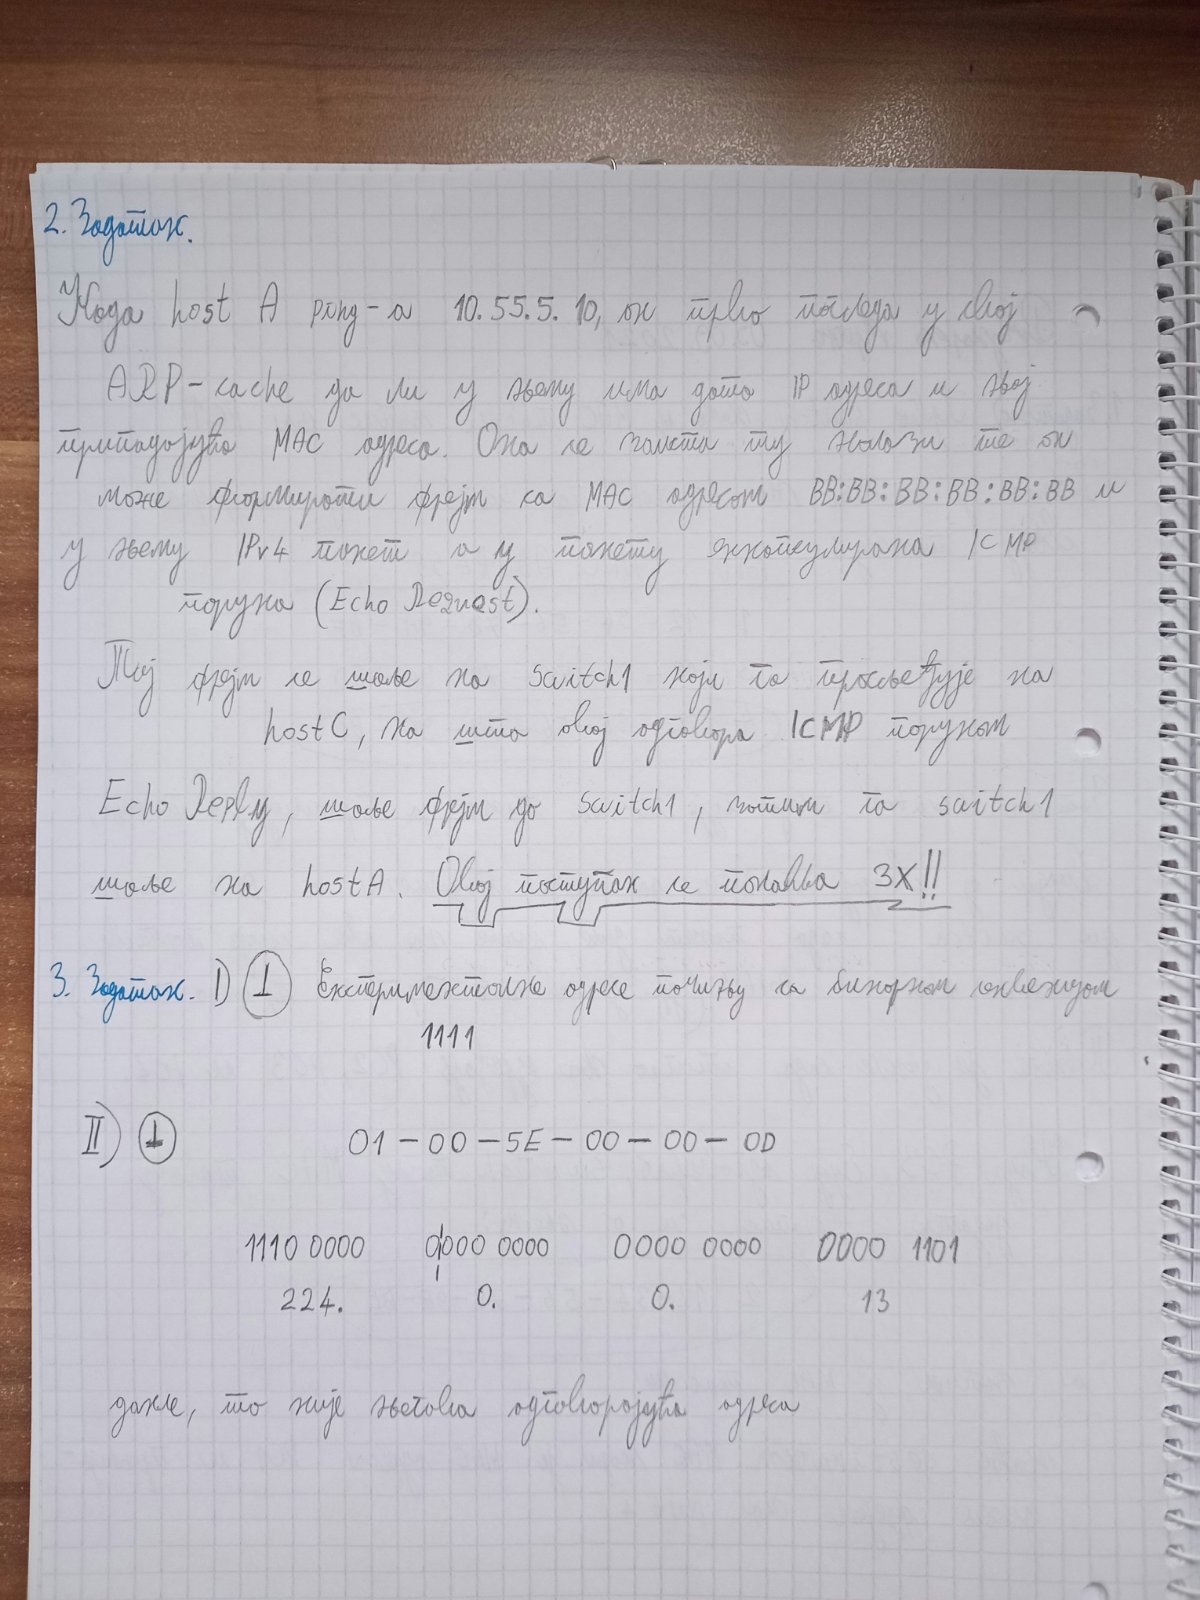 2. Задатак.
Када host A ping-а 10.55.5.10, он прво погледа у свој
ARP-cache да ли у њему има дата IP адреса и њој
припадајућа MAC адреса. Она се заиста ту налази те он
може формирати фрејм са MAC адресом BB:BB:BB:BB:BB:BB и
у њему IPv4 пакет а у пакету енкапсулирана ICMP
порука (Echo Request).
Тај фрејм се шаље на switch1 који га просљеђује на
hostC, на шта овај одговара ICMP поруком
Echo Reply, шаље фрејм до switch1, затим га switch1
шаље на hostA. Овај поступак се понавља 3X!!
3. Задатак. I) ⊥ Експерименталне адресе почињу са бинарном секвенцом
1111
II) ⊥ 01-00-5E-00-00-0D
1110 0000 0000 0000 0000 0000 0000 1101
224. 0. 0. 13
дакле, то није његова одговарајућа адреса